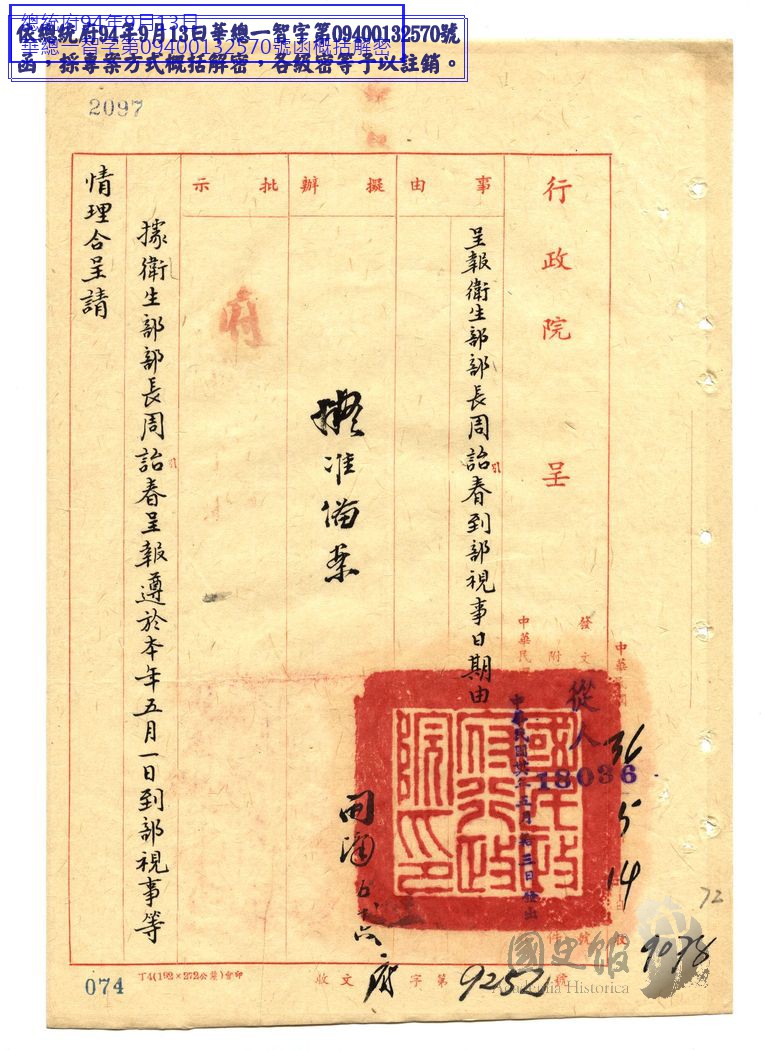 總統府94年9月13日
華總一智字第09400132570號函概括解密
依總統府94年9月13日華總一智字第09400132570號
函，採專案方式概括解密，各級密等予以註銷。
2097
行政院 呈
事由
呈報衛生部部長周詒春到部視事日期由
擬辦
擬准備案
批示
府
據衛生部部長周詒春呈報遵於本年五月一日到部視事等
情理合呈請
發文
附
件
號
中華民國
從人
18036
36
5
14
9078
72
國民政府行政院印
收文 字第9252號
074
丁4(192×272公釐)會印
國史館
Academia Historica